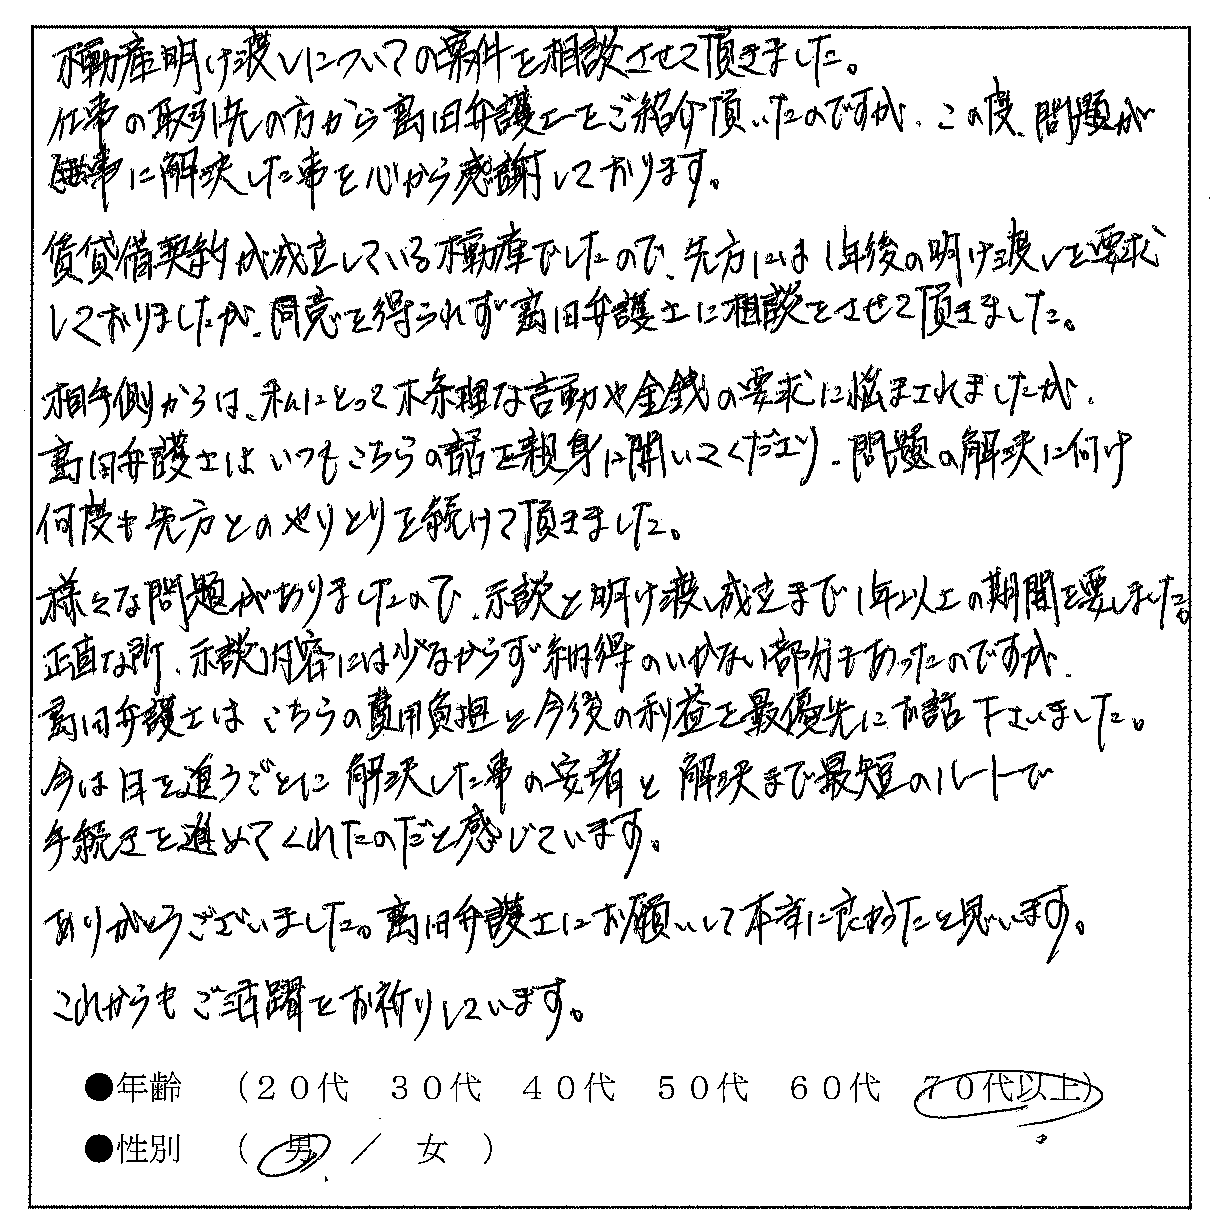 不動産明け渡しについての案件を相談させて頂きました。
仕事の取引先の方から高田弁護士をご紹介頂いたのですが、この度、問題が
無事に解決した事を心から感謝しております。
賃貸借契約が成立している不動産でしたので、先方には1年後の明け渡しを要求
しておりましたが、同意を得られず高田弁護士に相談をさせて頂きました。
相手側からは、私にとって不条理な言動や金銭の要求に悩まされましたが、
高田弁護士はいつもこちらの話を親身に聞いてくださり、問題の解決に向け
何度も先方とのやりとりを続けて頂きました。
様々な問題がありましたので、示談と明け渡し成立まで1年以上の期間を要しました。
正直な所、示談内容には少なからず納得のいかない部分もあったのですが、
高田弁護士はこちらの費用負担と今後の利益を最優先にお話下さいました。
今は日を追うごとに解決した事の安堵と解決まで最短のルートで
手続きを進めてくれたのだと感じています。
ありがとうございました。高田弁護士にお願いして本当に良かったと思います。
これからもご活躍をお祈りしています。
●年齢 (20代 30代 40代 50代 60代 70代以上)
●性別 ( 男 / 女 )